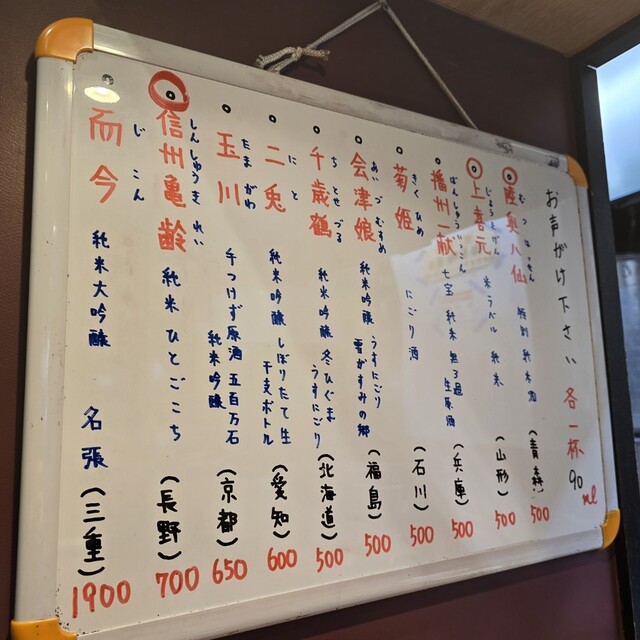 お声がけ下さい 各一杯 90 ml
陸奥八仙 むつはっせん 特別 純米酒 (青森) 500
上喜元 じょうきげん 米ラベル 純米 (山形) 500
播州一献 ばんしゅういっこん 七宝 純米 無ろ過 生原酒 (兵庫) 500
菊姫 きくひめ にごり酒 (石川) 500
会津娘 あいづむすめ 純米吟醸 うすにごり
雪がすみの郷 (福島) 500
千歳鶴 ちとせづる 純米吟醸 冬ひぐま
うすにごり (北海道) 500
二兎 にと 純米吟醸 しぼりたて生
干支ボトル (愛知) 600
玉川 たまがわ 手つけず原酒 五百万石
純米吟醸 (京都) 650
信州亀齢 しんしゅうきれい 純米 ひとごこち (長野) 700
而今 じこん 純米大吟醸 名張 (三重) 1900